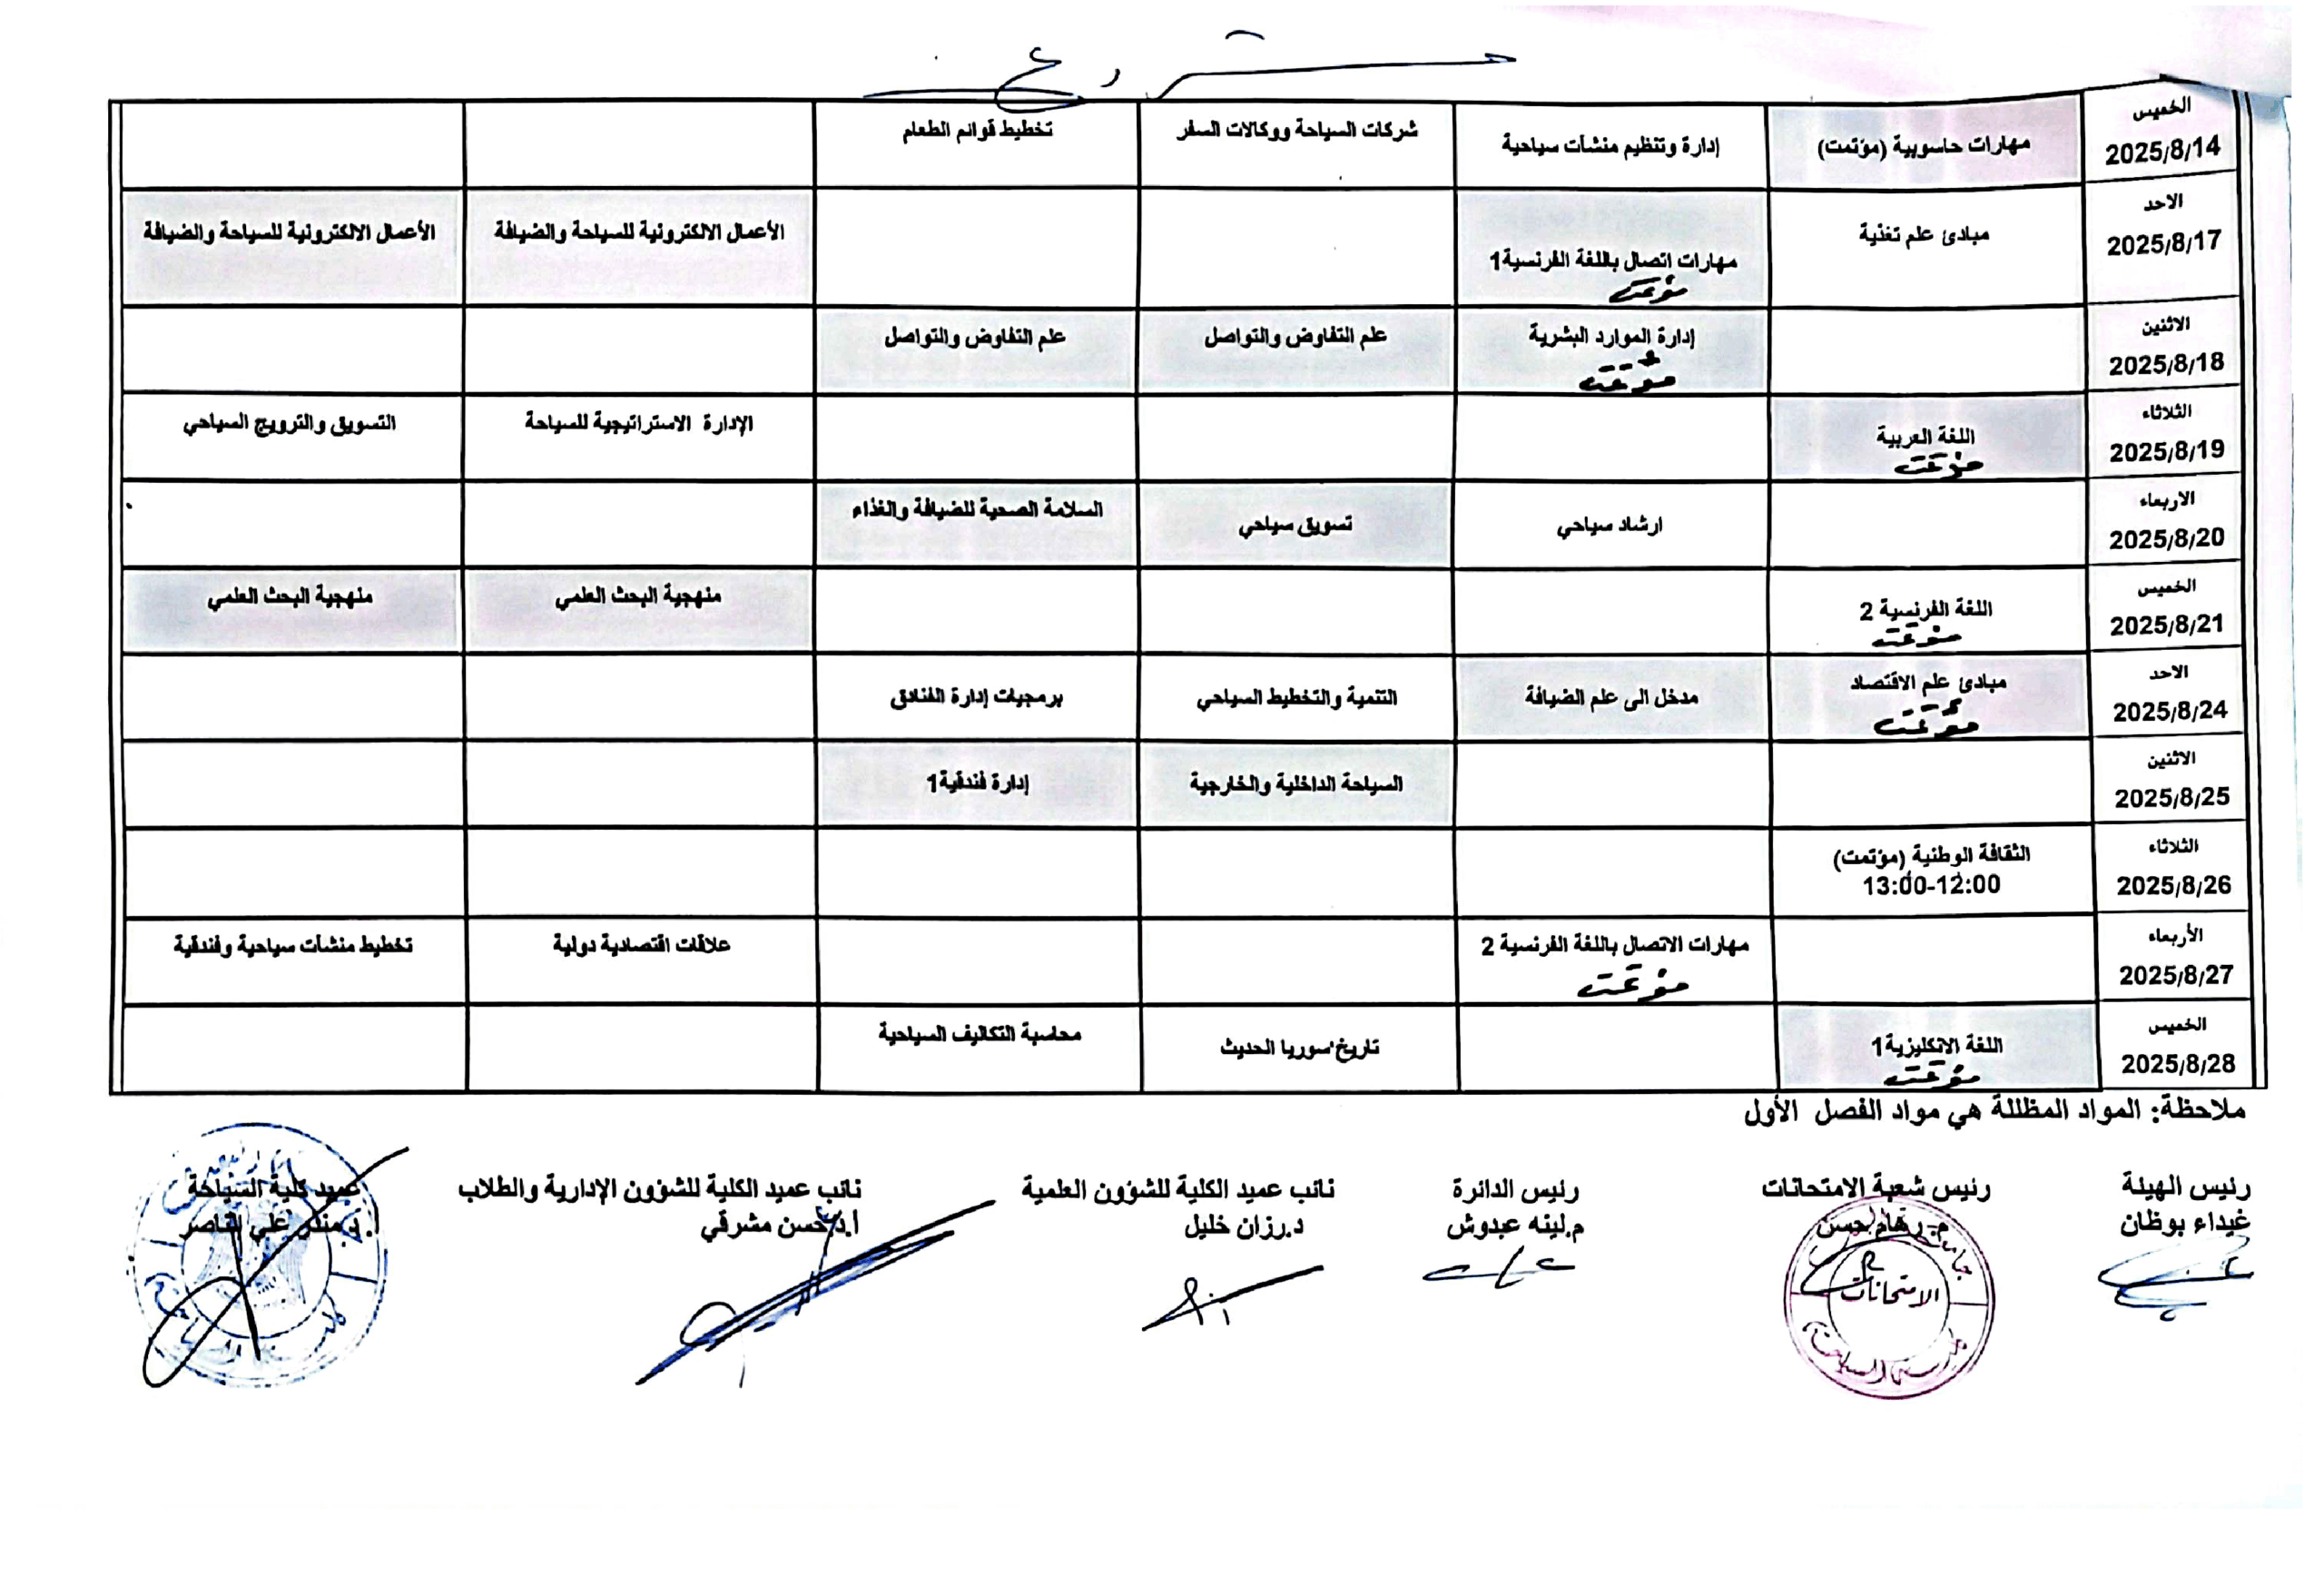 الخميس
2025/8/14
مهارات حاسوبية (مؤتمت)
إدارة وتنظيم منشآت سياحية
شركات السياحة ووكالات السفر
تخطيط قوائم الطعام
الاحد
2025/8/17
مبادئ علم تغذية
مهارات اتصال باللغة الفرنسية1
مؤتمت
الأعمال الالكترونية للسياحة والضيافة
الأعمال الالكترونية للسياحة والضيافة
الاثنين
2025/8/18
إدارة الموارد البشرية
مؤتمت
علم التفاوض والتواصل
علم التفاوض والتواصل
الثلاثاء
2025/8/19
اللغة العربية
مؤتمت
الإدارة الاستراتيجية للسياحة
التسويق والترويج السياحي
الاربعاء
2025/8/20
ارشاد سياحي
تسويق سياحي
السلامة الصحية للضيافة والغذاء
الخميس
2025/8/21
اللغة الفرنسية 2
مؤتمت
منهجية البحث العلمي
منهجية البحث العلمي
الاحد
2025/8/24
مبادئ علم الاقتصاد
مؤتمت
مدخل الى علم الضيافة
التنمية والتخطيط السياحي
برمجيات إدارة الفنادق
الاثنين
2025/8/25
السياحة الداخلية والخارجية
إدارة فندقية1
الثلاثاء
2025/8/26
الثقافة الوطنية (مؤتمت)
13:00-12:00
الأربعاء
2025/8/27
مهارات الاتصال باللغة الفرنسية 2
مؤتمت
علاقات اقتصادية دولية
تخطيط منشآت سياحية وفندقية
الخميس
2025/8/28
اللغة الانكليزية1
مؤتمت
تاريخ سوريا الحديث
محاسبة التكاليف السياحية
ملاحظة: المواد المظللة هي مواد الفصل الأول
رئيس الهيئة
غيداء بوظان
رئيس شعبة الامتحانات
م.رهام حسن
الامتحانات
رئيس الدائرة
م.لينه عبدوش
نائب عميد الكلية للشؤون العلمية
د.رزان خليل
نائب عميد الكلية للشؤون الإدارية والطلاب
أ.د.حسن مشرقي
عميد كلية السياحة
أ.د.منذر علي الناصر